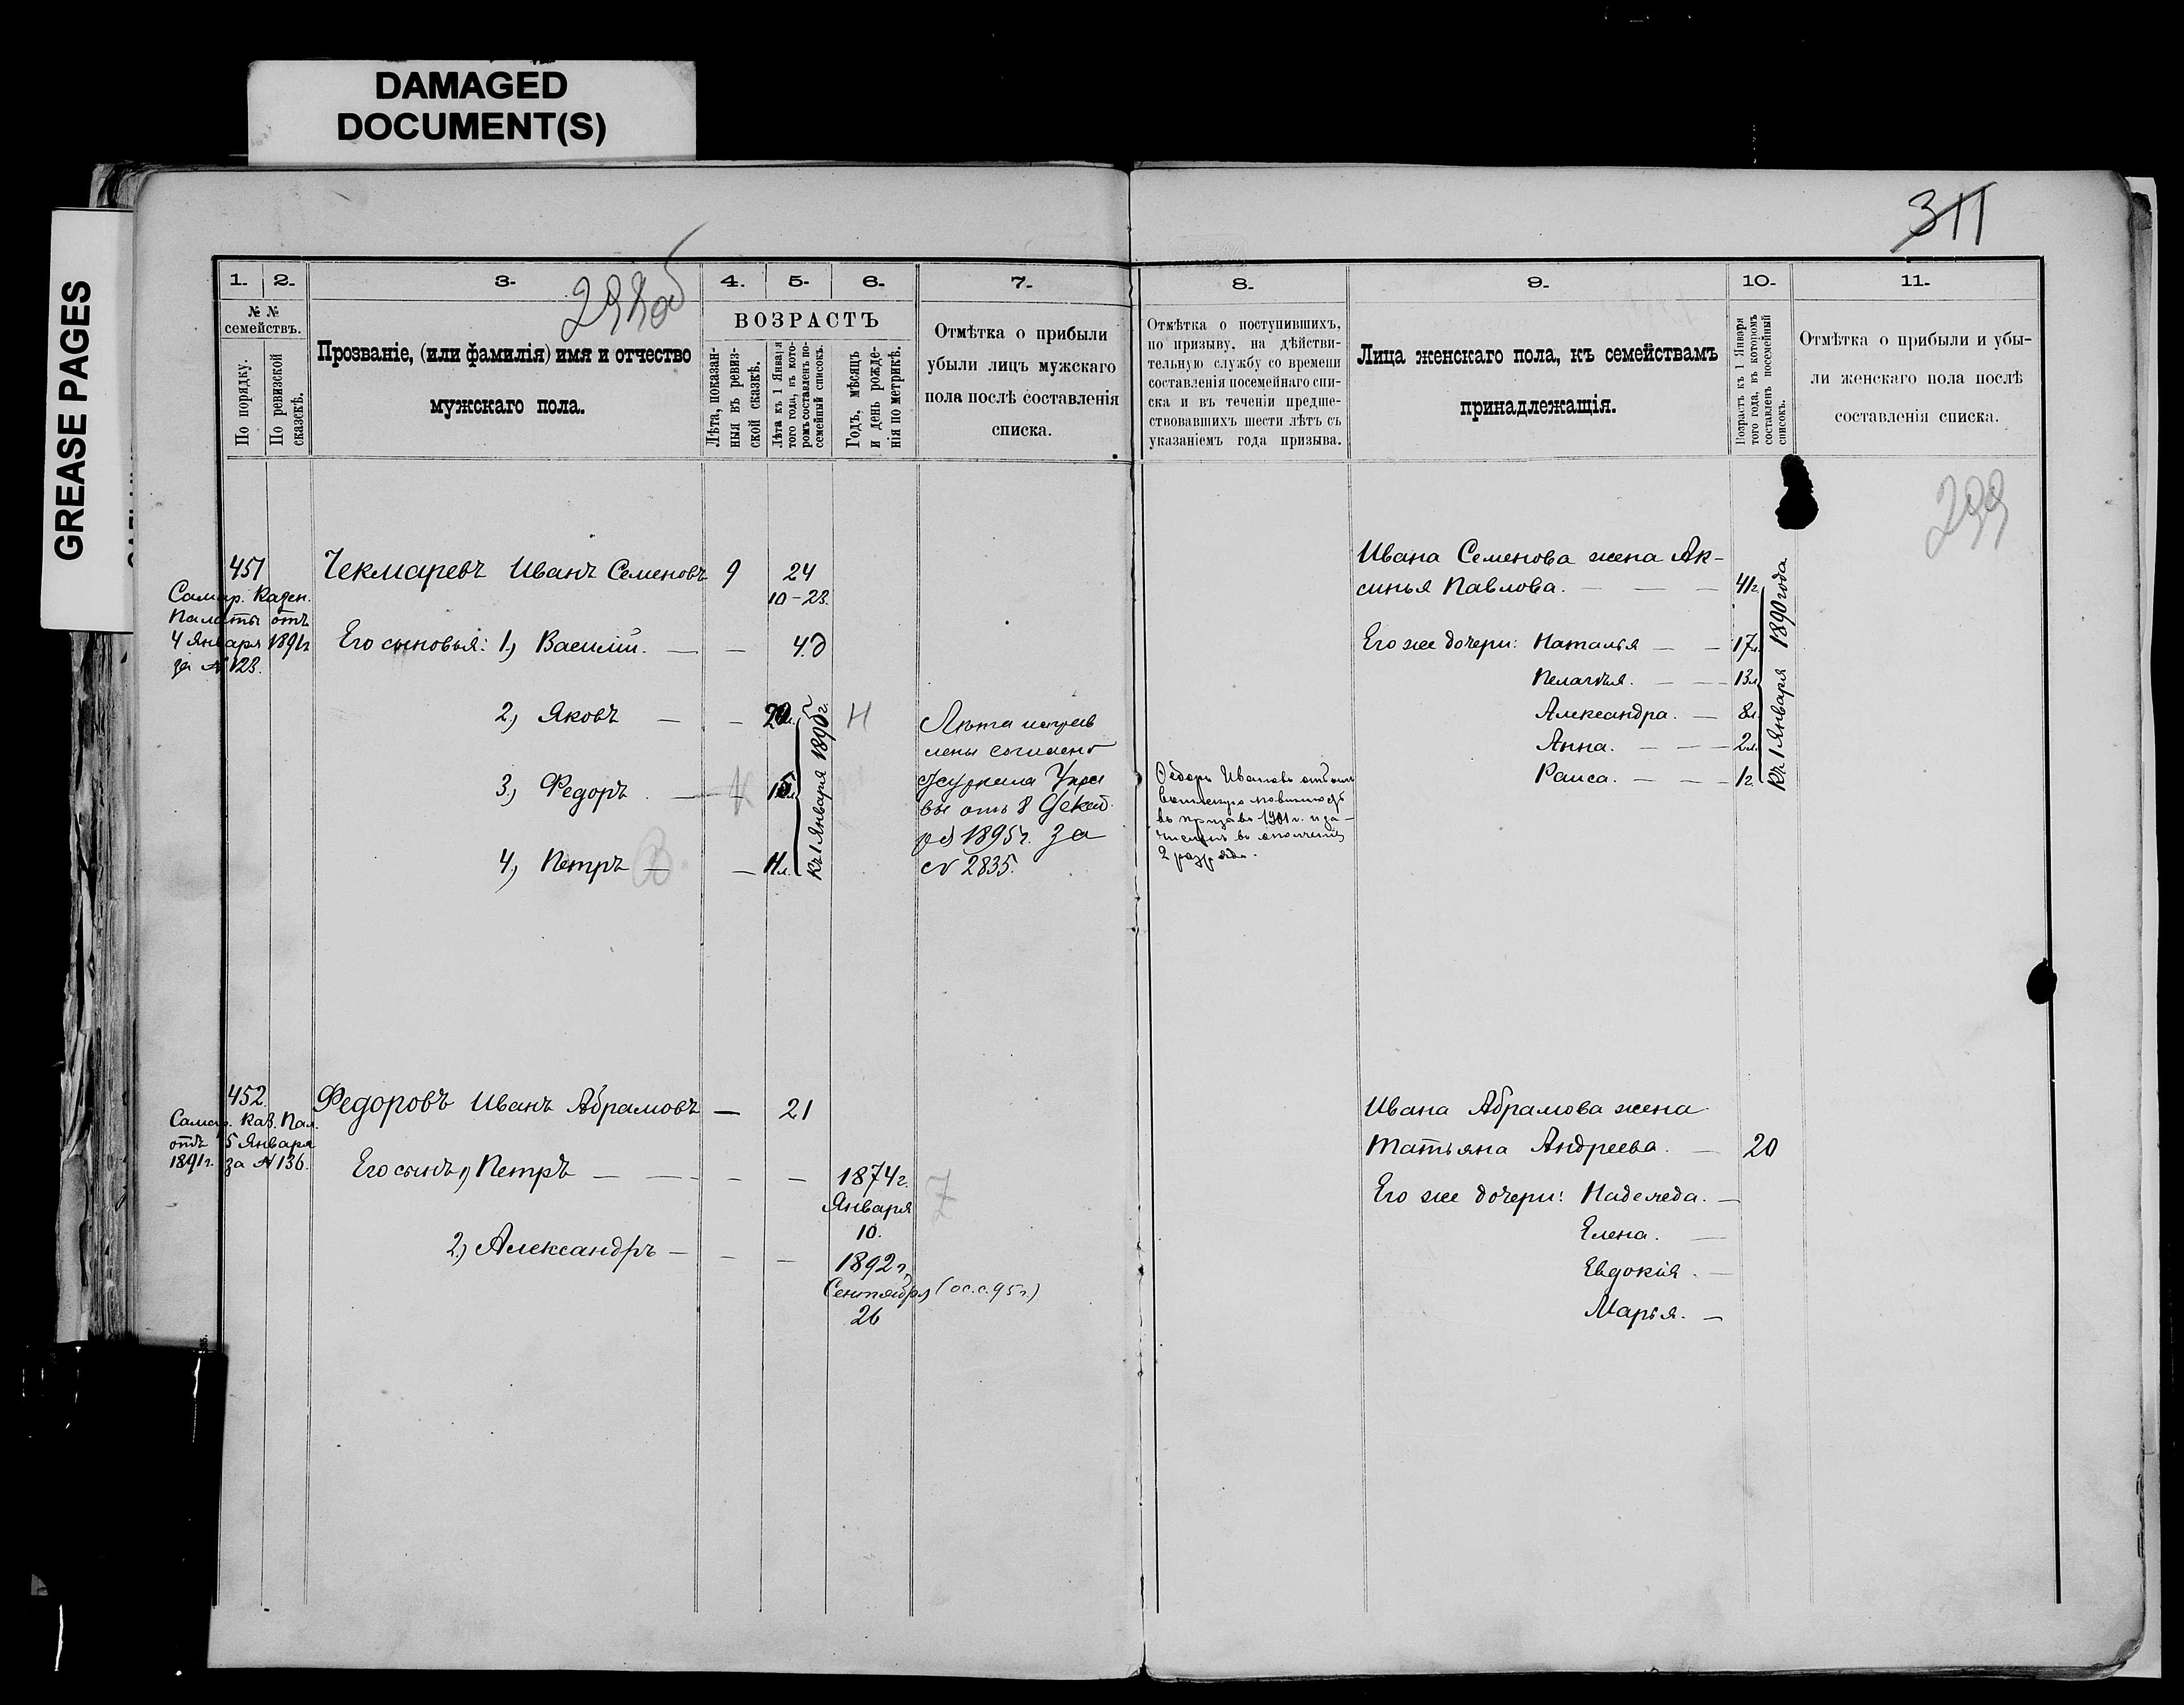 DAMAGED
DOCUMENT(S)
GREASE PAGES
311
298об
299
1. 2. 3. 4. 5. 6. 7.
№ №
семействъ.
По порядку.
По ревизской
сказскѣ.
Прозваніе, (или фамилія) имя и отчество
мужскаго пола.
ВОЗРАСТЪ
Лѣта, показан-
ныя въ ревиз-
ской сказкѣ.
Лѣта къ 1 Января
того года, въ кото-
ромъ составленъ по-
семейный списокъ.
Годъ, мѣсяцъ
и день рожде-
нія по метрикѣ.
Отмѣтка о прибыли
убыли лицъ мужскаго
пола послѣ составленія
списка.
451
Самар. Казен.
Палаты отъ
4 Января 1891г
за № 123.
Чекмаревъ Иванъ Семеновъ 9 24
10-23.
Его сыновья: 1, Василій. — — 4.д
2, Яковъ — — 20л. Н
3, Федоръ. — — 15л
4, Петръ — — 11л.
Къ 1 Января 1895г.
Лѣта исправ
лены согласно
журнала Упра
вы отъ 8 Декаб.
ря 1895г. за
№ 2835.
452
Самар. Каз. Пал.
отъ 5 Января
1891г. за № 136.
Федоровъ Иванъ Абрамовъ — 21
Его сынъ 1, Петръ — — — — 1874г.
Января
10.
7
2, Александръ — — — 1892г,
Сентября (ос.с. 95г.)
26
8. 9. 10. 11.
Отмѣтка о поступившихъ,
по призыву, на дѣйстви-
тельную службу со времени
составленія посемейнаго спи-
ска и въ теченіи предше-
ствовавшихъ шести лѣтъ съ
указаніемъ года призыва.
Лица женскаго пола, къ семействамъ
принадлежащія.
Возрастъ къ 1 Января
того года, въ которомъ
составленъ посемейный
списокъ.
Отмѣтка о прибыли и убы-
ли женскаго пола послѣ
составленія списка.
Федоръ Ивановъ отбылъ
воинскую повинность
въ призывъ 1901г. и за-
численъ въ ополченіе
2 разряда.
Ивана Семенова жена Ак-
синья Павлова. — — — 41г.
Его же дочери: Наталья — — 17л.
Пелагѣя. — — 13л
Александра. — 8л.
Анна. — — — 2л.
Раиса. — — — 1г.
Къ 1 Января 1890 года
Ивана Абрамова жена
Татьяна Андреева. — 20
Его же дочери: Надежда. —
Елена. —
Евдокія. —
Марья. —